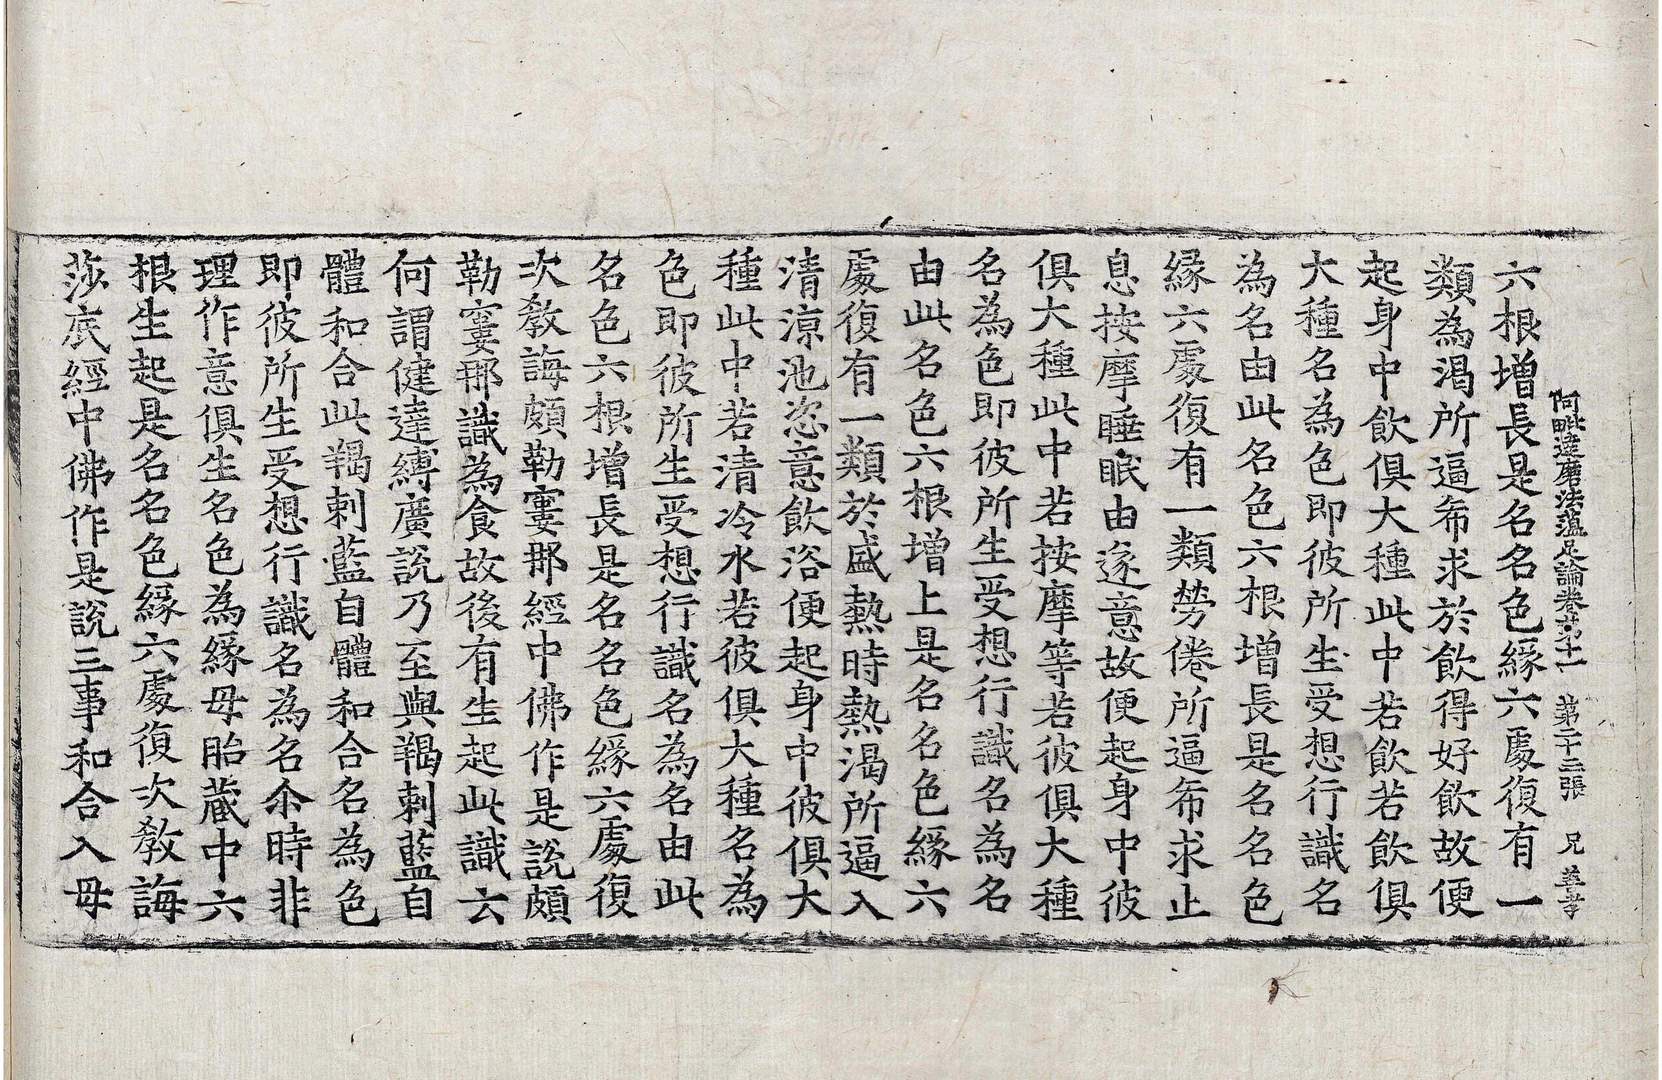 阿毗達磨法蘊足論卷第十一 第二十二張 兄
六根增長是名名色緣六處復有一
類為渴所逼希求於飲得好飲故便
起身中飲俱大種此中若飲若飲俱
大種名為色即彼所生受想行識名
為名由此名色六根增長是名名色
緣六處復有一類勞倦所逼希求止
息按摩睡眠由遂意故便起身中彼
俱大種此中若按摩等若彼俱大種
名為色即彼所生受想行識名為名
由此名色六根增上是名名色緣六
處復有一類於盛熱時熱渴所逼入
清涼池恣意飲浴便起身中彼俱大
種此中若清冷水若彼俱大種名為
色即彼所生受想行識名為名由此
名色六根增長是名名色緣六處復
次教誨頗勒窶那經中佛作是說頗
勒窶那識為食故後有生起此識云
何謂健達縛廣說乃至與羯剌藍自
體和合此羯剌藍自體和合名為色
即彼所生受想行識名為名尒時非
理作意俱生名色為緣母胎藏中六
根生起是名名色緣六處復次教誨
莎底經中佛作是說三事和合入母